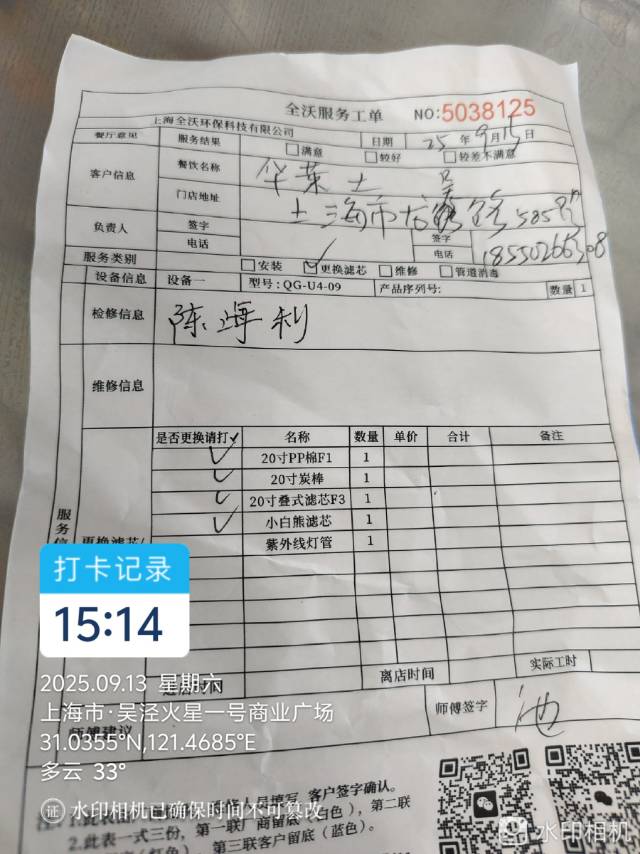 全沃服务工单 NO:5038125
上海全沃环保科技有限公司
餐厅意见 服务结果 满意 日期 25年9月13日
较好 较差不满意
客户信息 餐饮名称 华莱士
门店地址 上海市龙 路585号
负责人 签字 签字
电话 电话
服务类别 安装 ✓更换滤芯 维修 管道消毒
设备信息 设备一 型号:QG-U4-09 产品序列号: 数量 1
检修信息 陈海利
维修信息
是否更换请打✓ 名称 数量 单价 合计 备注
✓ 20寸PP棉F1 1
✓ 20寸炭棒 1
✓ 20寸叠式滤芯F3 1
✓ 小白熊滤芯 1
紫外线灯管 1
服务信
更换滤芯/
打卡记录
15:14
离店时间 实际工时
师傅建议 师傅签字 池
2025.09.13 星期六
上海市·吴泾火星一号商业广场
31.0355°N,121.4685°E
多云 33°
证 水印相机已确保时间不可篡改
填写 客户签字确认。
2.此表一式三份，第一联厂商留底(白色)，第二联
第三联客户留底(蓝色)。
水印相机